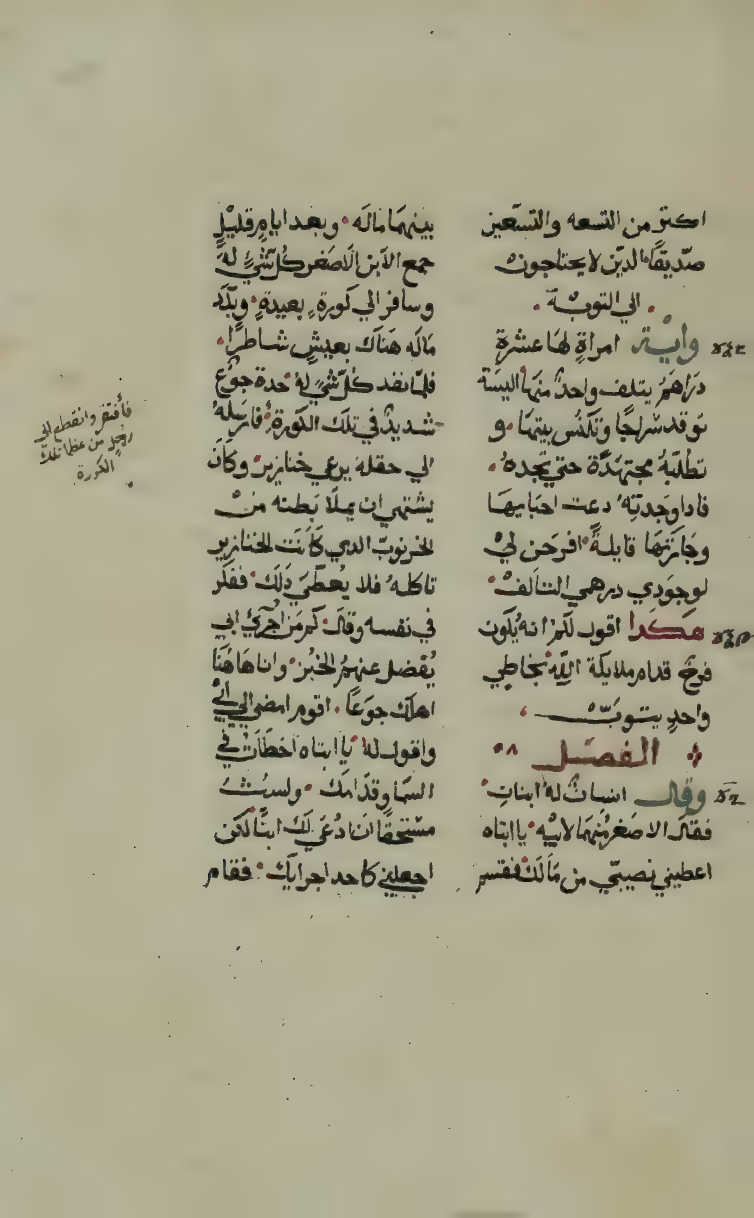 اكتر من التسعه والتسعين
صديقا الدين لا يحتاجون
الي التوبة
واية امراة لها عشرة
دراهم يتلف واحد منها اليسة
توقد سراجا وتكنس بيتها و
تطلبه مجتهدة حتي تجده
فادا وجدته دعت احبايها
وجارتها قايلة افرحن لي
لوجودي درهمي التالف
هكدا اقول لكم انه يكون
فرح قدام ملايكة الله بخاطي
واحد يتوب
الفصل
وقال انسان له ابنان
فقال الاصغر منهما لابيه يا ابتاه
اعطيني نصيبي من مالك فقسم
بينهما ماله وبعد ايام قليل
جمع الابن الاصغر كل شي له
وسافر الي كورة بعيدة وبدد
ماله هناك بعيش شاطرا
فلما نفد كل شي له حدة جوع
شديد في تلك الكورة فارسله
الي حقله يرعي خنازير وكان
يشتهي ان يملا بطنه من
الخرنوب الدي كانت الخنازير
تاكله فلا يعطي دلك ففكر
في نفسه وقال كم من اجري ابي
يفضل عنهم الخبز وانا هاهنا
اهلك جوعا اقوم امضي الي ابي
واقول له يا ابتاه اخطات في
السما وقدامك ولست
مستحقا ان ادعي لك ابنا لكن
اجعلني كاحد اجرايك فقام
فافتقر وانقطع الي
رجل من عظما تلك
الكورة